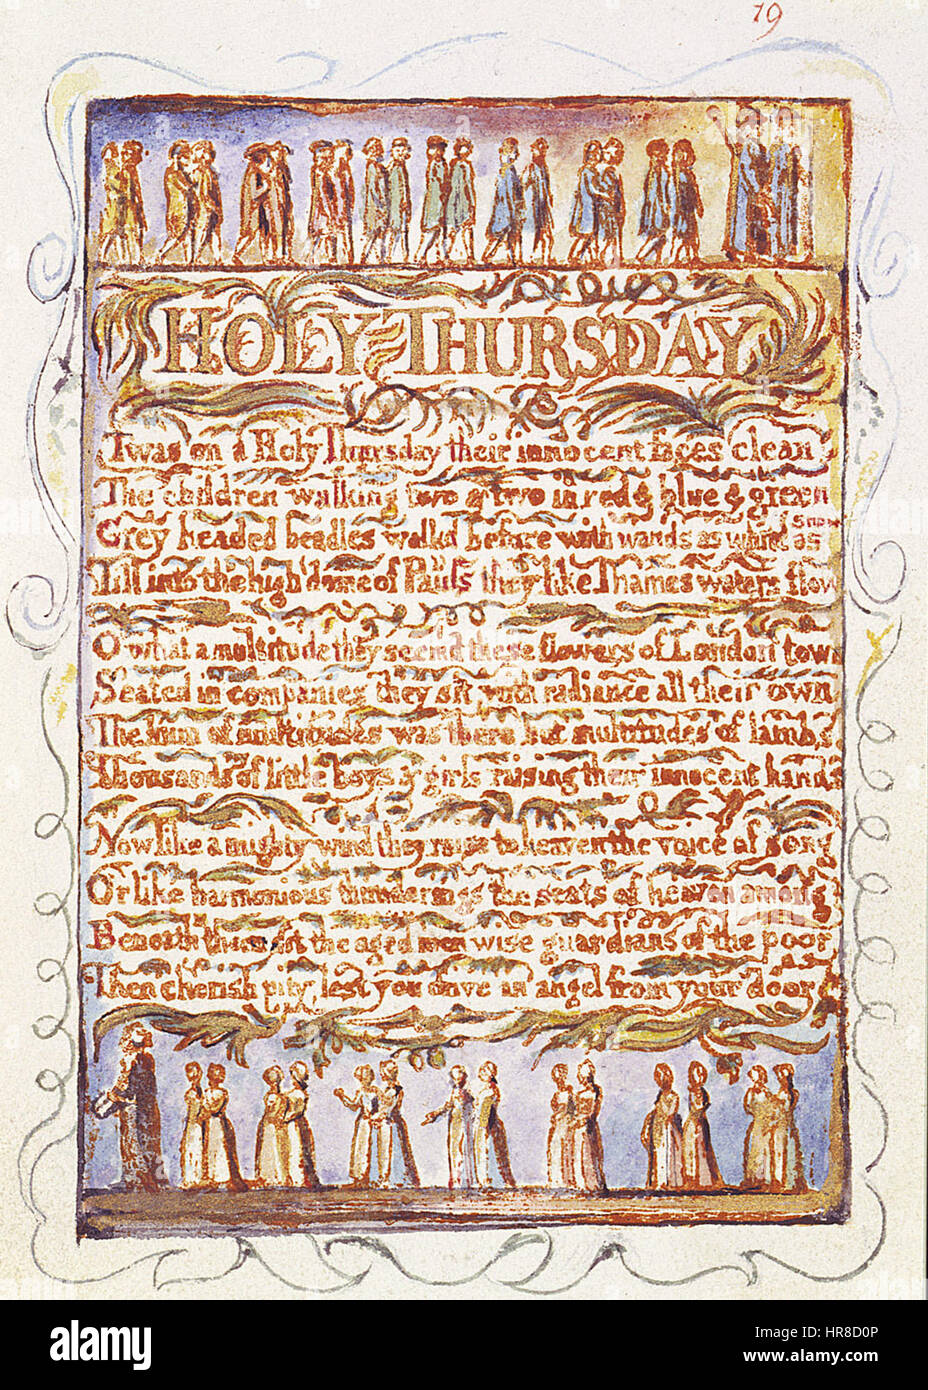 19
HOLY THURSDAY
Twas on a Holy Thursday their innocent faces clean
The children walking two & two in red & blue & green
Grey headed beadles walkd before with wands as white as snow
Till into the high dome of Pauls they like Thames waters flow
O what a multitude they seemd these flowers of London town
Seated in companies they sit with radiance all their own
The hum of multitudes was there but multitudes of lambs
Thousands of little boys & girls raising their innocent hands
Now like a mighty wind they raise to heaven the voice of song
Or like harmonious thunderings the seats of heaven among
Beneath them sit the aged men wise guardians of the poor
Then cherish pity, lest you drive an angel from your door
alamy stock photo
HR8D0P
www.alamy.com